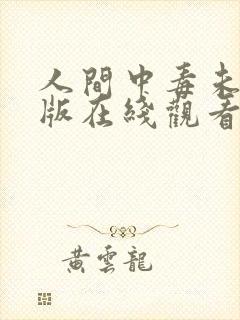 人間中毒未
版在綫觀看
黄雲龍